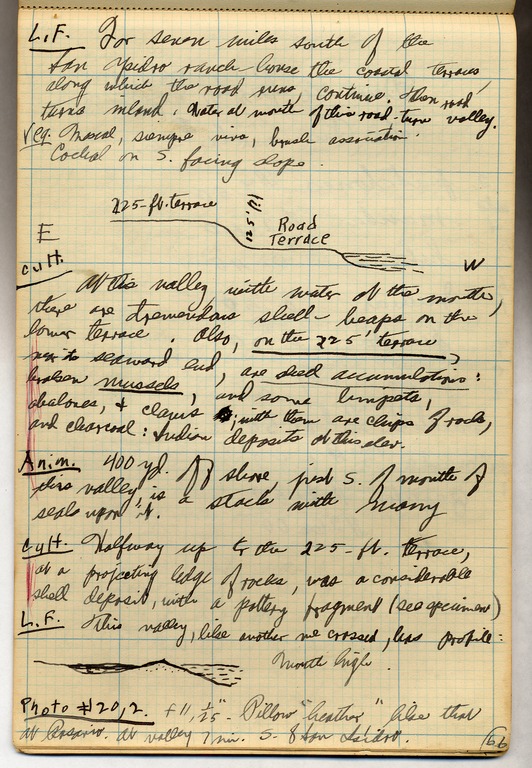 L.F. For seven miles south of the
San Ysidro ranch-house the coastal terraces
along which the road runs, continue, then road
turns inland. Water at mouth of this road-turn valley.
Veg. Mescal, siempre viva, brush association.
Cochal on S. facing slope.
225-ft. terrace
125' hi
Road
Terrace
E
W
Cult.
At this valley with water at the mouth,
there are tremendous shell heaps on the
lower terrace. Also, on the 225' terrace,
near its seaward end, are shell accumulations:
broken mussels, and some limpets,
abalones, & clams; with them are chips of rock,
and charcoal: Indian deposits at this elev.
Anim. 400 yd. off shore, just S. of mouth of
this valley, is a stack with many
seals upon it.
Cult. Halfway up to the 225-ft. terrace,
at a projecting ledge of rocks, was a considerable
shell deposit, with a pottery fragment (see specimen)
L.F. This valley, like another we crossed, has profile:
Mouth high.
Photo #20,2. f 11, 1/25 - Pillow "heather" like that
at Rosario. At valley 7 mi. S. of San Isidro.
66